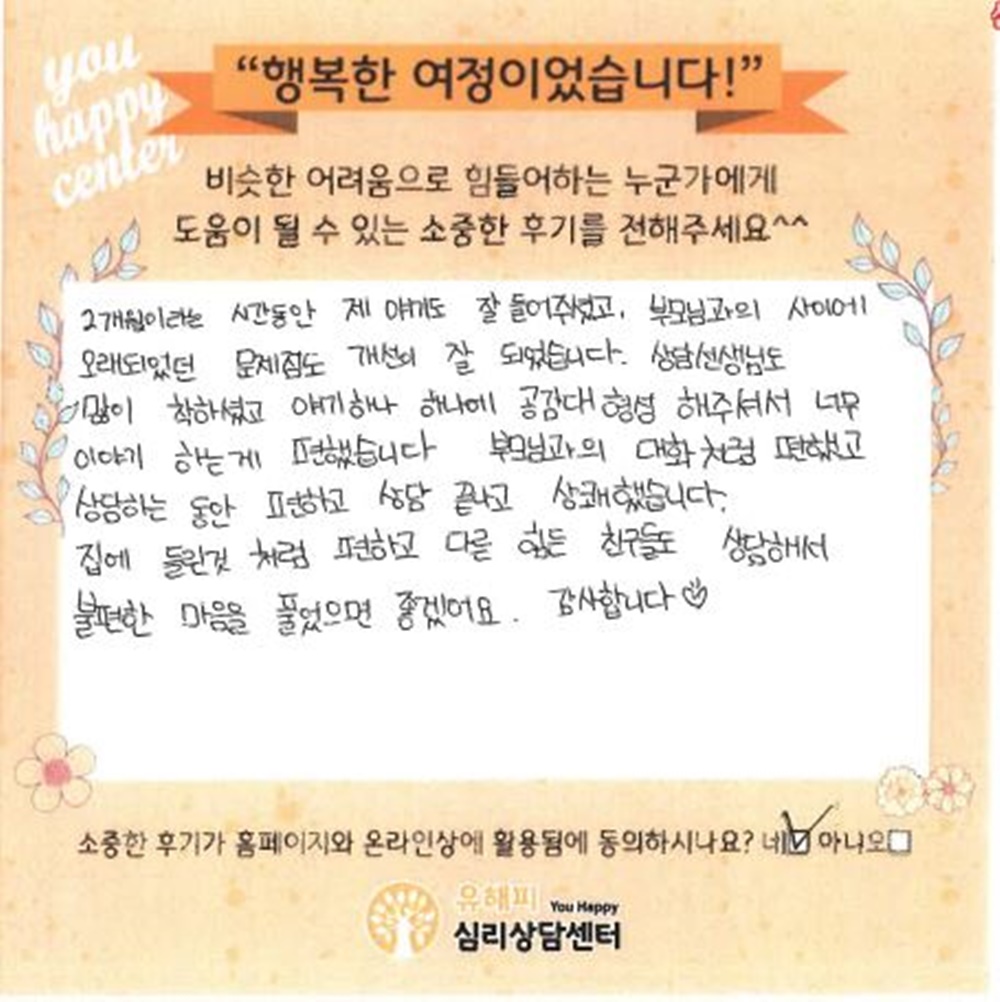 you
happy
center
“행복한 여정이었습니다!”
비슷한 어려움으로 힘들어하는 누군가에게
도움이 될 수 있는 소중한 후기를 전해주세요^^
2개월이라는 시간동안 제 얘기도 잘 들어주셨고, 부모님과의 사이에
오래되었던 문제점도 개선이 잘 되었습니다. 상담선생님도
많이 착하셨고 얘기하나 하나에 공감대 형성 해주셔서 너무
이야기 하는게 편했습니다 부모님과의 대화처럼 편했고
상담하는 동안 편하고 상담 끝나고 상쾌했습니다.
집에 들린것 처럼 편하고 다른 힘든 친구들도 상담해서
불편한 마음을 풀었으면 좋겠어요. 감사합니다♡
소중한 후기가 홈페이지와 온라인상에 활용됨에 동의하시나요? 네☑ 아니오□
유해피 You Happy
심리상담센터